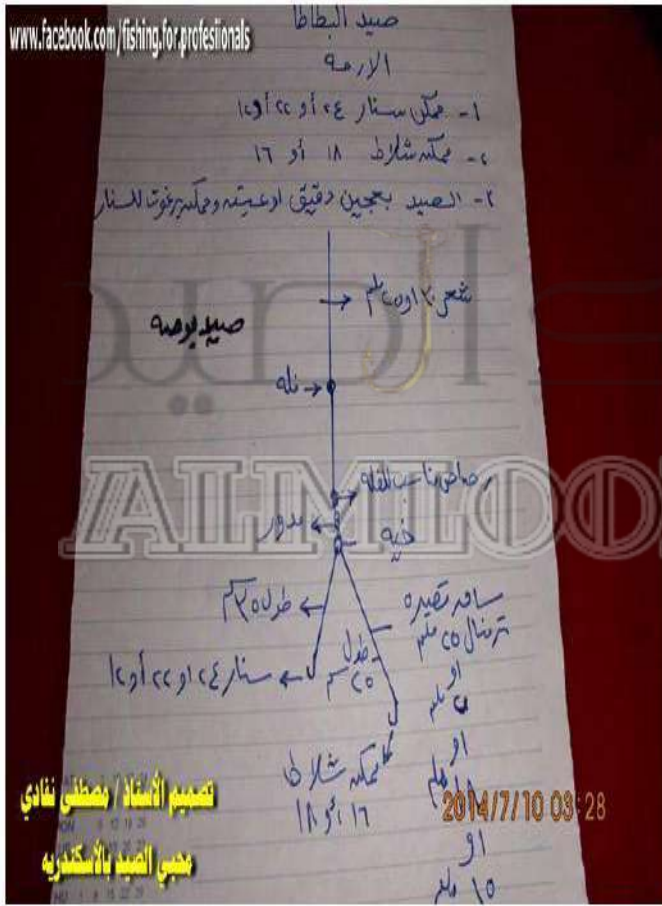 www.facebook.com/fishing.for.profesiionals
صيد البطاطا
١- ممكن سنار ٢٤ أو ٢٢ أو ٢١
٢- ممكن شلاط ١٨ أو ١٦
٣- الصيد بعجين دقيق او عيش وممكن برغوت للسنار
شعر ٣٠ او ٢٥ ملم
صيد بوصه
فله
رصاص مناسب للفله
مدور
خيه
طول ٣٥ سم
سنار ٢٤ او ٢٢ أو ٢١
مسافه قصيره
ترمنال ٢٥ ملم
او
٢٠ ملم
او
١٨ ملم
او
١٥ ملم
طول
٢٥ سم
ممكن شلاط
١٦ أو ١٨
ALMLOO
تصميم الأستاذ / مصطفى نفادي
محبي الصيد بالأسكندريه
2014/7/10 03:28